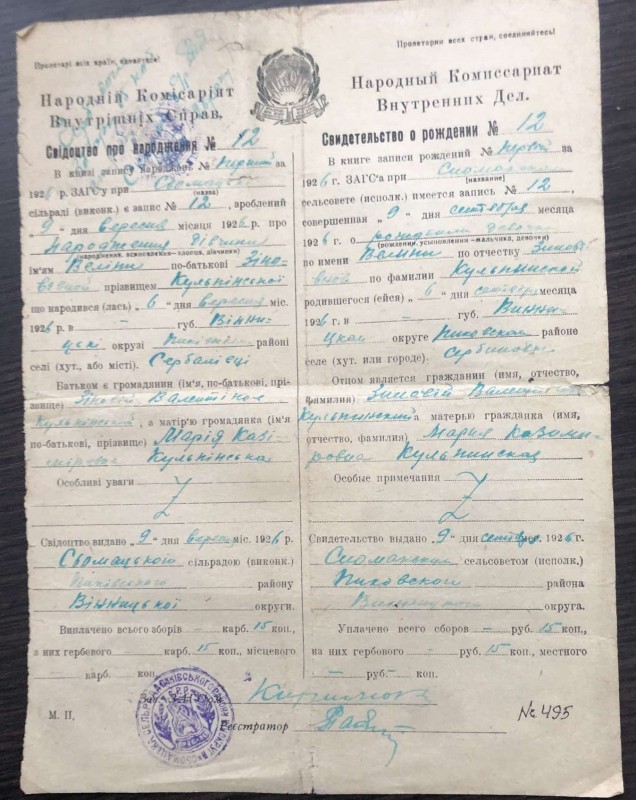 Пролетарі всіх країн, єднайтеся!
Народній Комісаріят
Внутрішніх Справ.
Свідоцтво про народження № 12
В книзі запису народжень № Перший за
1926 р. ЗАГС'а при
(назва)
сільраді (виконк.) є запис № 12, зроблений
„9" дня Вересня місяця 1926 р. про
народження дівчини
(народження, всиновлення—хлопця, дівчини)
ім'ям Веліни по-батькові Зіно-
вієвной прізвищем Кульпінської
що народився (лась) „6" дня вересня міс.
1926 р. в — губ. Вінни-
цькі окрузі районі
селі (хут., або місті).
Батьком є громадянин (ім'я, по-батькові, прі-
звище) Зіновій Валентінов
Кульпінський, а матір'ю громадянка (ім'я
по-батькові, прізвище) Марія Казі-
міровна Кульпінська
Особливі уваги
Z
Свідоцтво видано „9" дня Вересня міс. 1926 р.
Сьомацького сільрадою (виконк.)
Пиківського району
Вінницької округи.
Виплачено всього зборів — карб. 15 коп.,
з них гербового — карб. 15 коп., місцевого
— карб. коп.
М. П,
Пролетарии всех стран, соединяйтесь!
Народный Комиссариат
Внутренних Дел.
Свидетельство о рождении № 12
В книге записи рождений № Первой за
1926 г. ЗАГС'а при
(название)
сельсовете (исполк.) имеется запись № 12,
совершенная „9" дня сентября месяца
1926 г. о рождении девочки
(рождении, усыновлении—мальчика, девочки)
по имени Велины по отчеству Зиновi-
вной по фамилии Кульпинской
родившегося (ейся) „6" дня сентября месяца
1926 г. в — губ. Винни-
цкой округе Пиковском районе
селе (хут. или городе).
Отцом является гражданин (имя, отчество,
фамилия) Зиновий
Кульпинский а матерью гражданка (имя,
отчество, фамилия) Мария Казими-
ровна Кульпинская
Особые примечания
Z
Свидетельство выдано „9" дня сентяб мес. 1926 г.
сельсоветом (исполк.)
Пиковского района
Винницкого округа.
Уплачено всего сборов — руб. 15 коп.,
из них гербового — руб. 15 коп., местного
— руб. — коп.
Регистратор
№ 495